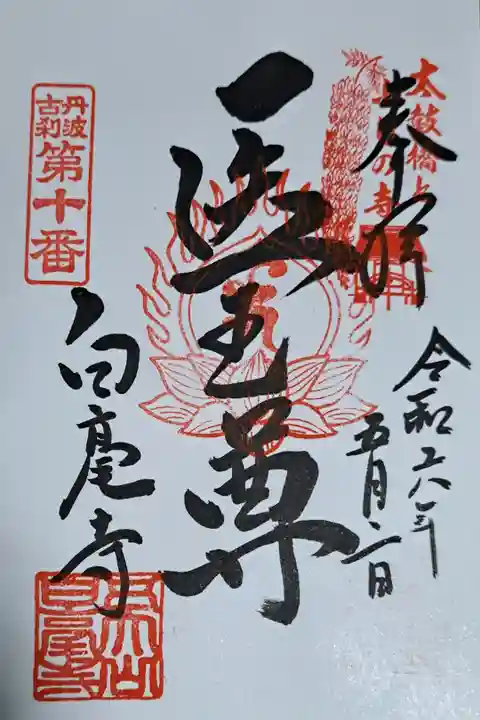 奉拝
太鼓橋と
の寺
令和六年
五月三日
医王尊
丹波
古刹
第十番
白毫寺
五大山
白毫寺